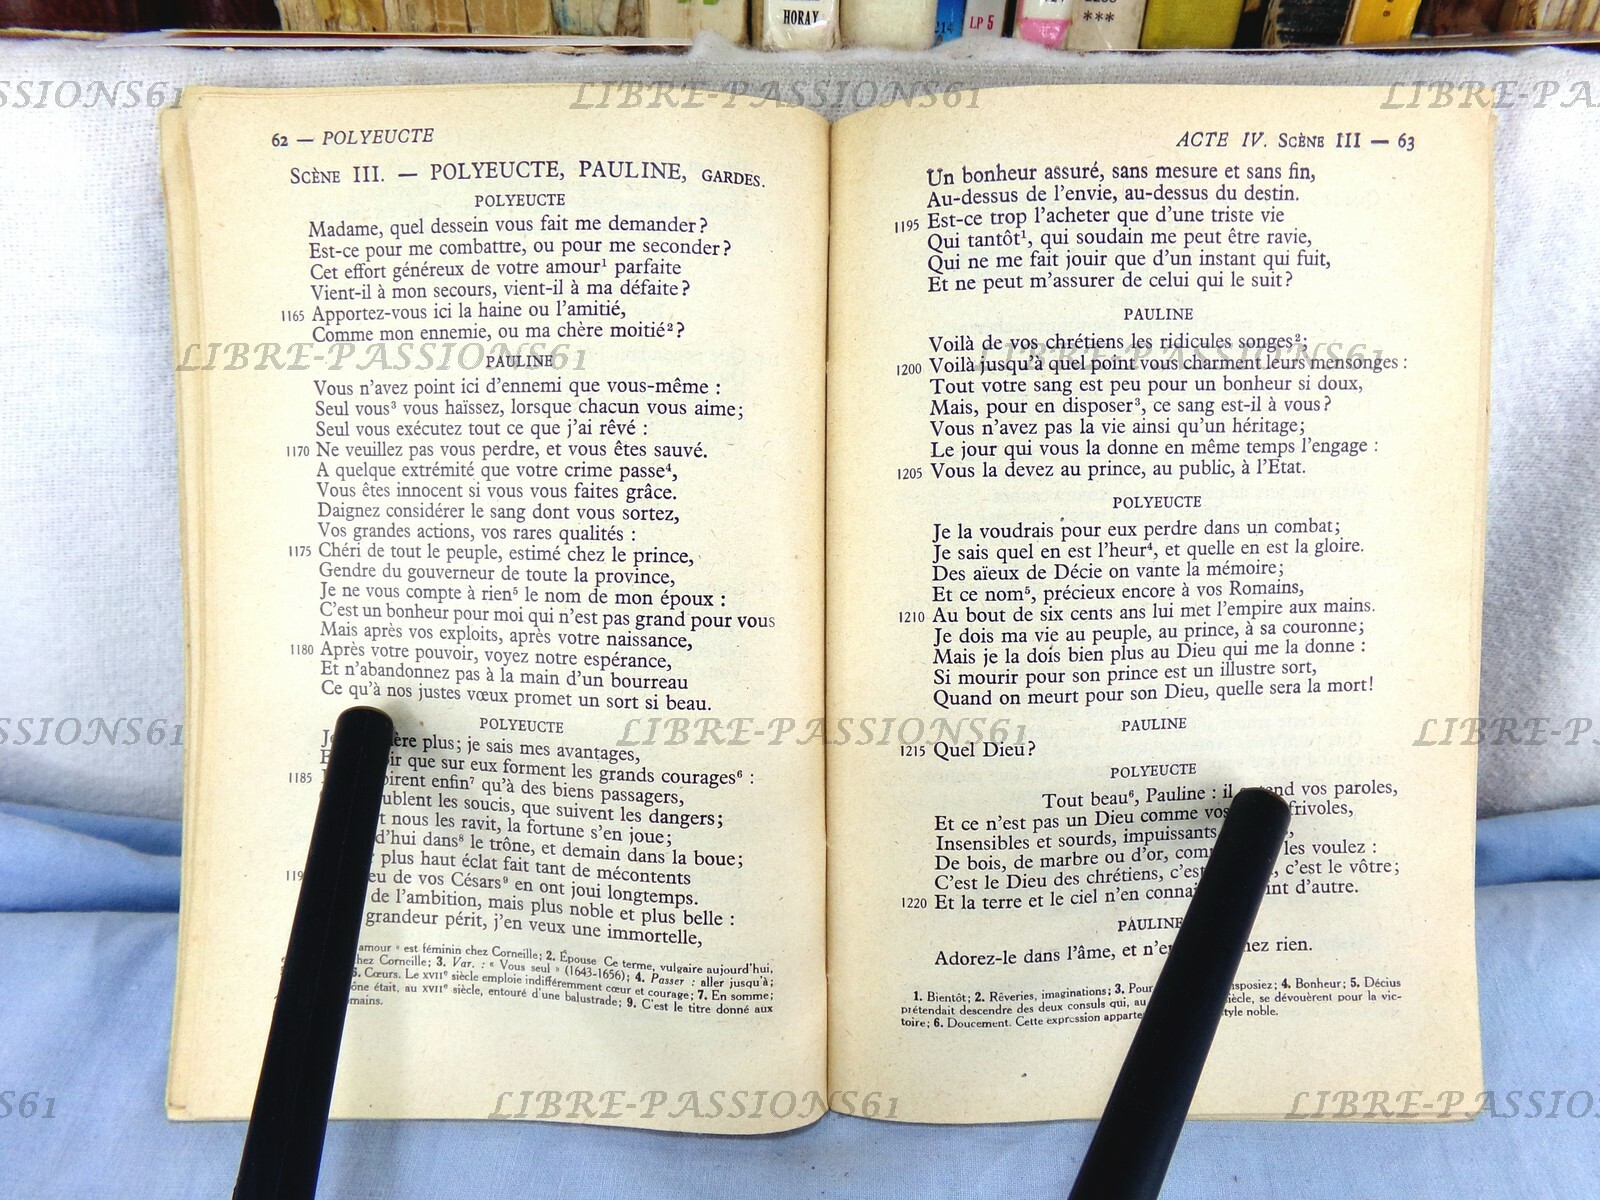 HORAY
214
LP 5
***
62 — POLYEUCTE
Scène III. — POLYEUCTE, PAULINE, GARDES.
POLYEUCTE
Madame, quel dessein vous fait me demander?
Est-ce pour me combattre, ou pour me seconder?
Cet effort généreux de votre amour¹ parfaite
Vient-il à mon secours, vient-il à ma défaite?
1165 Apportez-vous ici la haine ou l'amitié,
Comme mon ennemie, ou ma chère moitié²?
PAULINE
Vous n'avez point ici d'ennemi que vous-même :
Seul vous³ vous haïssez, lorsque chacun vous aime;
Seul vous exécutez tout ce que j'ai rêvé :
1170 Ne veuillez pas vous perdre, et vous êtes sauvé.
A quelque extrémité que votre crime passe⁴,
Vous êtes innocent si vous vous faites grâce.
Daignez considérer le sang dont vous sortez,
Vos grandes actions, vos rares qualités :
1175 Chéri de tout le peuple, estimé chez le prince,
Gendre du gouverneur de toute la province,
Je ne vous compte à rien⁵ le nom de mon époux :
C'est un bonheur pour moi qui n'est pas grand pour vous
Mais après vos exploits, après votre naissance,
1180 Après votre pouvoir, voyez notre espérance,
Et n'abandonnez pas à la main d'un bourreau
Ce qu'à nos justes vœux promet un sort si beau.
POLYEUCTE
plus; je sais mes avantages,
que sur eux forment les grands courages⁶ :
1185 enfin⁷ qu'à des biens passagers,
les soucis, que suivent les dangers;
nous les ravit, la fortune s'en joue;
d'hui dans⁸ le trône, et demain dans la boue;
plus haut éclat fait tant de mécontents
de vos Césars⁹ en ont joui longtemps.
de l'ambition, mais plus noble et plus belle :
grandeur périt, j'en veux une immortelle,
amour » est féminin chez Corneille; 2. Épouse Ce terme, vulgaire aujourd'hui,
chez Corneille; 3. Var. : « Vous seul » (1643-1656); 4. Passer : aller jusqu'à;
Cœurs. Le XVIIᵉ siècle emploie indifféremment cœur et courage; 7. En somme;
était, au XVIIᵉ siècle, entouré d'une balustrade; 9. C'est le titre donné aux
ACTE IV. Scène III — 63
Un bonheur assuré, sans mesure et sans fin,
Au-dessus de l'envie, au-dessus du destin.
1195 Est-ce trop l'acheter que d'une triste vie
Qui tantôt¹, qui soudain me peut être ravie,
Qui ne me fait jouir que d'un instant qui fuit,
Et ne peut m'assurer de celui qui le suit?
PAULINE
Voilà de vos chrétiens les ridicules songes²;
1200 Voilà jusqu'à quel point vous charment leurs mensonges :
Tout votre sang est peu pour un bonheur si doux,
Mais, pour en disposer³, ce sang est-il à vous?
Vous n'avez pas la vie ainsi qu'un héritage;
Le jour qui vous la donne en même temps l'engage :
1205 Vous la devez au prince, au public, à l'Etat.
POLYEUCTE
Je la voudrais pour eux perdre dans un combat;
Je sais quel en est l'heur⁴, et quelle en est la gloire.
Des aïeux de Décie on vante la mémoire;
Et ce nom⁵, précieux encore à vos Romains,
1210 Au bout de six cents ans lui met l'empire aux mains.
Je dois ma vie au peuple, au prince, à sa couronne;
Mais je la dois bien plus au Dieu qui me la donne :
Si mourir pour son prince est un illustre sort,
Quand on meurt pour son Dieu, quelle sera la mort!
PAULINE
1215 Quel Dieu?
POLYEUCTE
Tout beau⁶, Pauline : il entend vos paroles,
Et ce n'est pas un Dieu comme vos frivoles,
Insensibles et sourds, impuissants
De bois, de marbre ou d'or, les voulez :
C'est le Dieu des chrétiens, c'est c'est le vôtre;
1220 Et la terre et le ciel n'en d'autre.
PAULINE
Adorez-le dans l'âme, et rien.
1. Bientôt; 2. Rêveries, imaginations; 3. Pour 4. Bonheur; 5. Décius
prétendait descendre des deux consuls qui, au siècle, se dévouèrent pour la vic-
toire; 6. Doucement. Cette expression style noble.
LIBRE-PASSIONS61
LIBRE-PASSIONS61
LIBRE-PASSIONS61
LIBRE-PASSIONS61
LIBRE-PASSIONS61